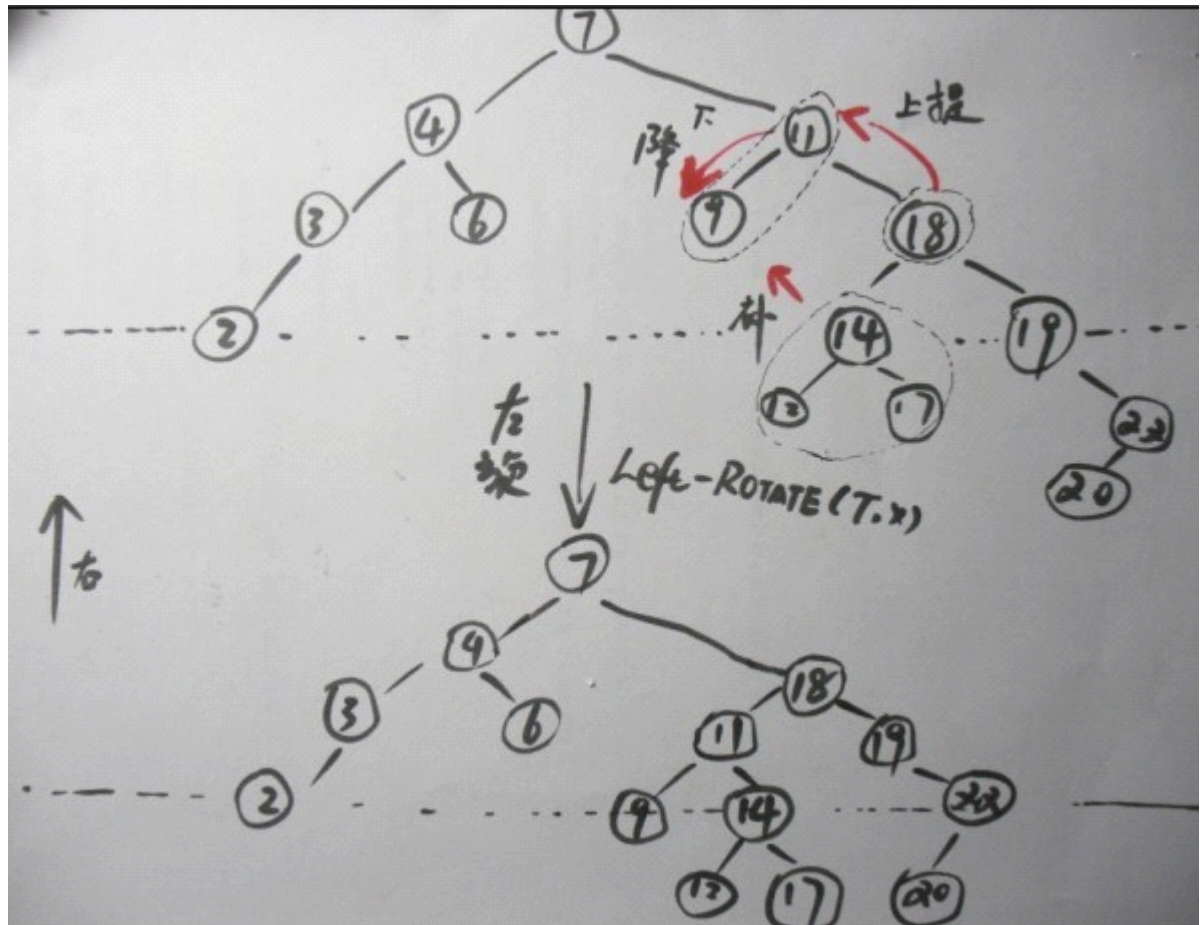 7
4
11
上提
下
降
3
6
9
18
2
补
14
19
12
17
22
20
左
旋
Left-ROTATE(T.x)
右
7
4
18
3
6
11
19
2
9
14
22
12
17
20